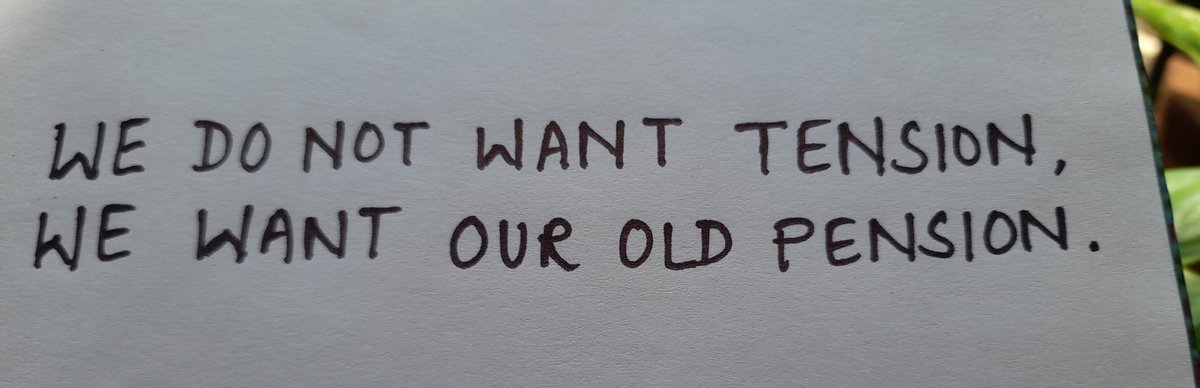 WE DO NOT WANT TENSION,
WE WANT OUR OLD PENSION.